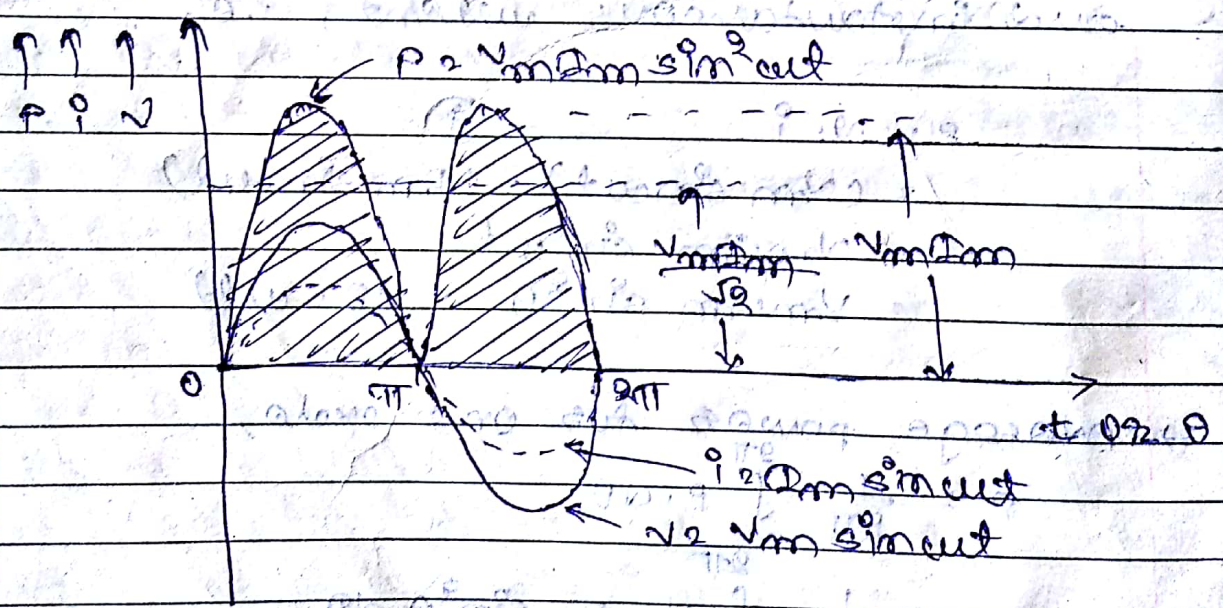 P = VmIm sin²ωt
P i V
VmIm
√2
VmIm
0 π 2π
t or θ
i = Im sin ωt
v = Vm sin ωt